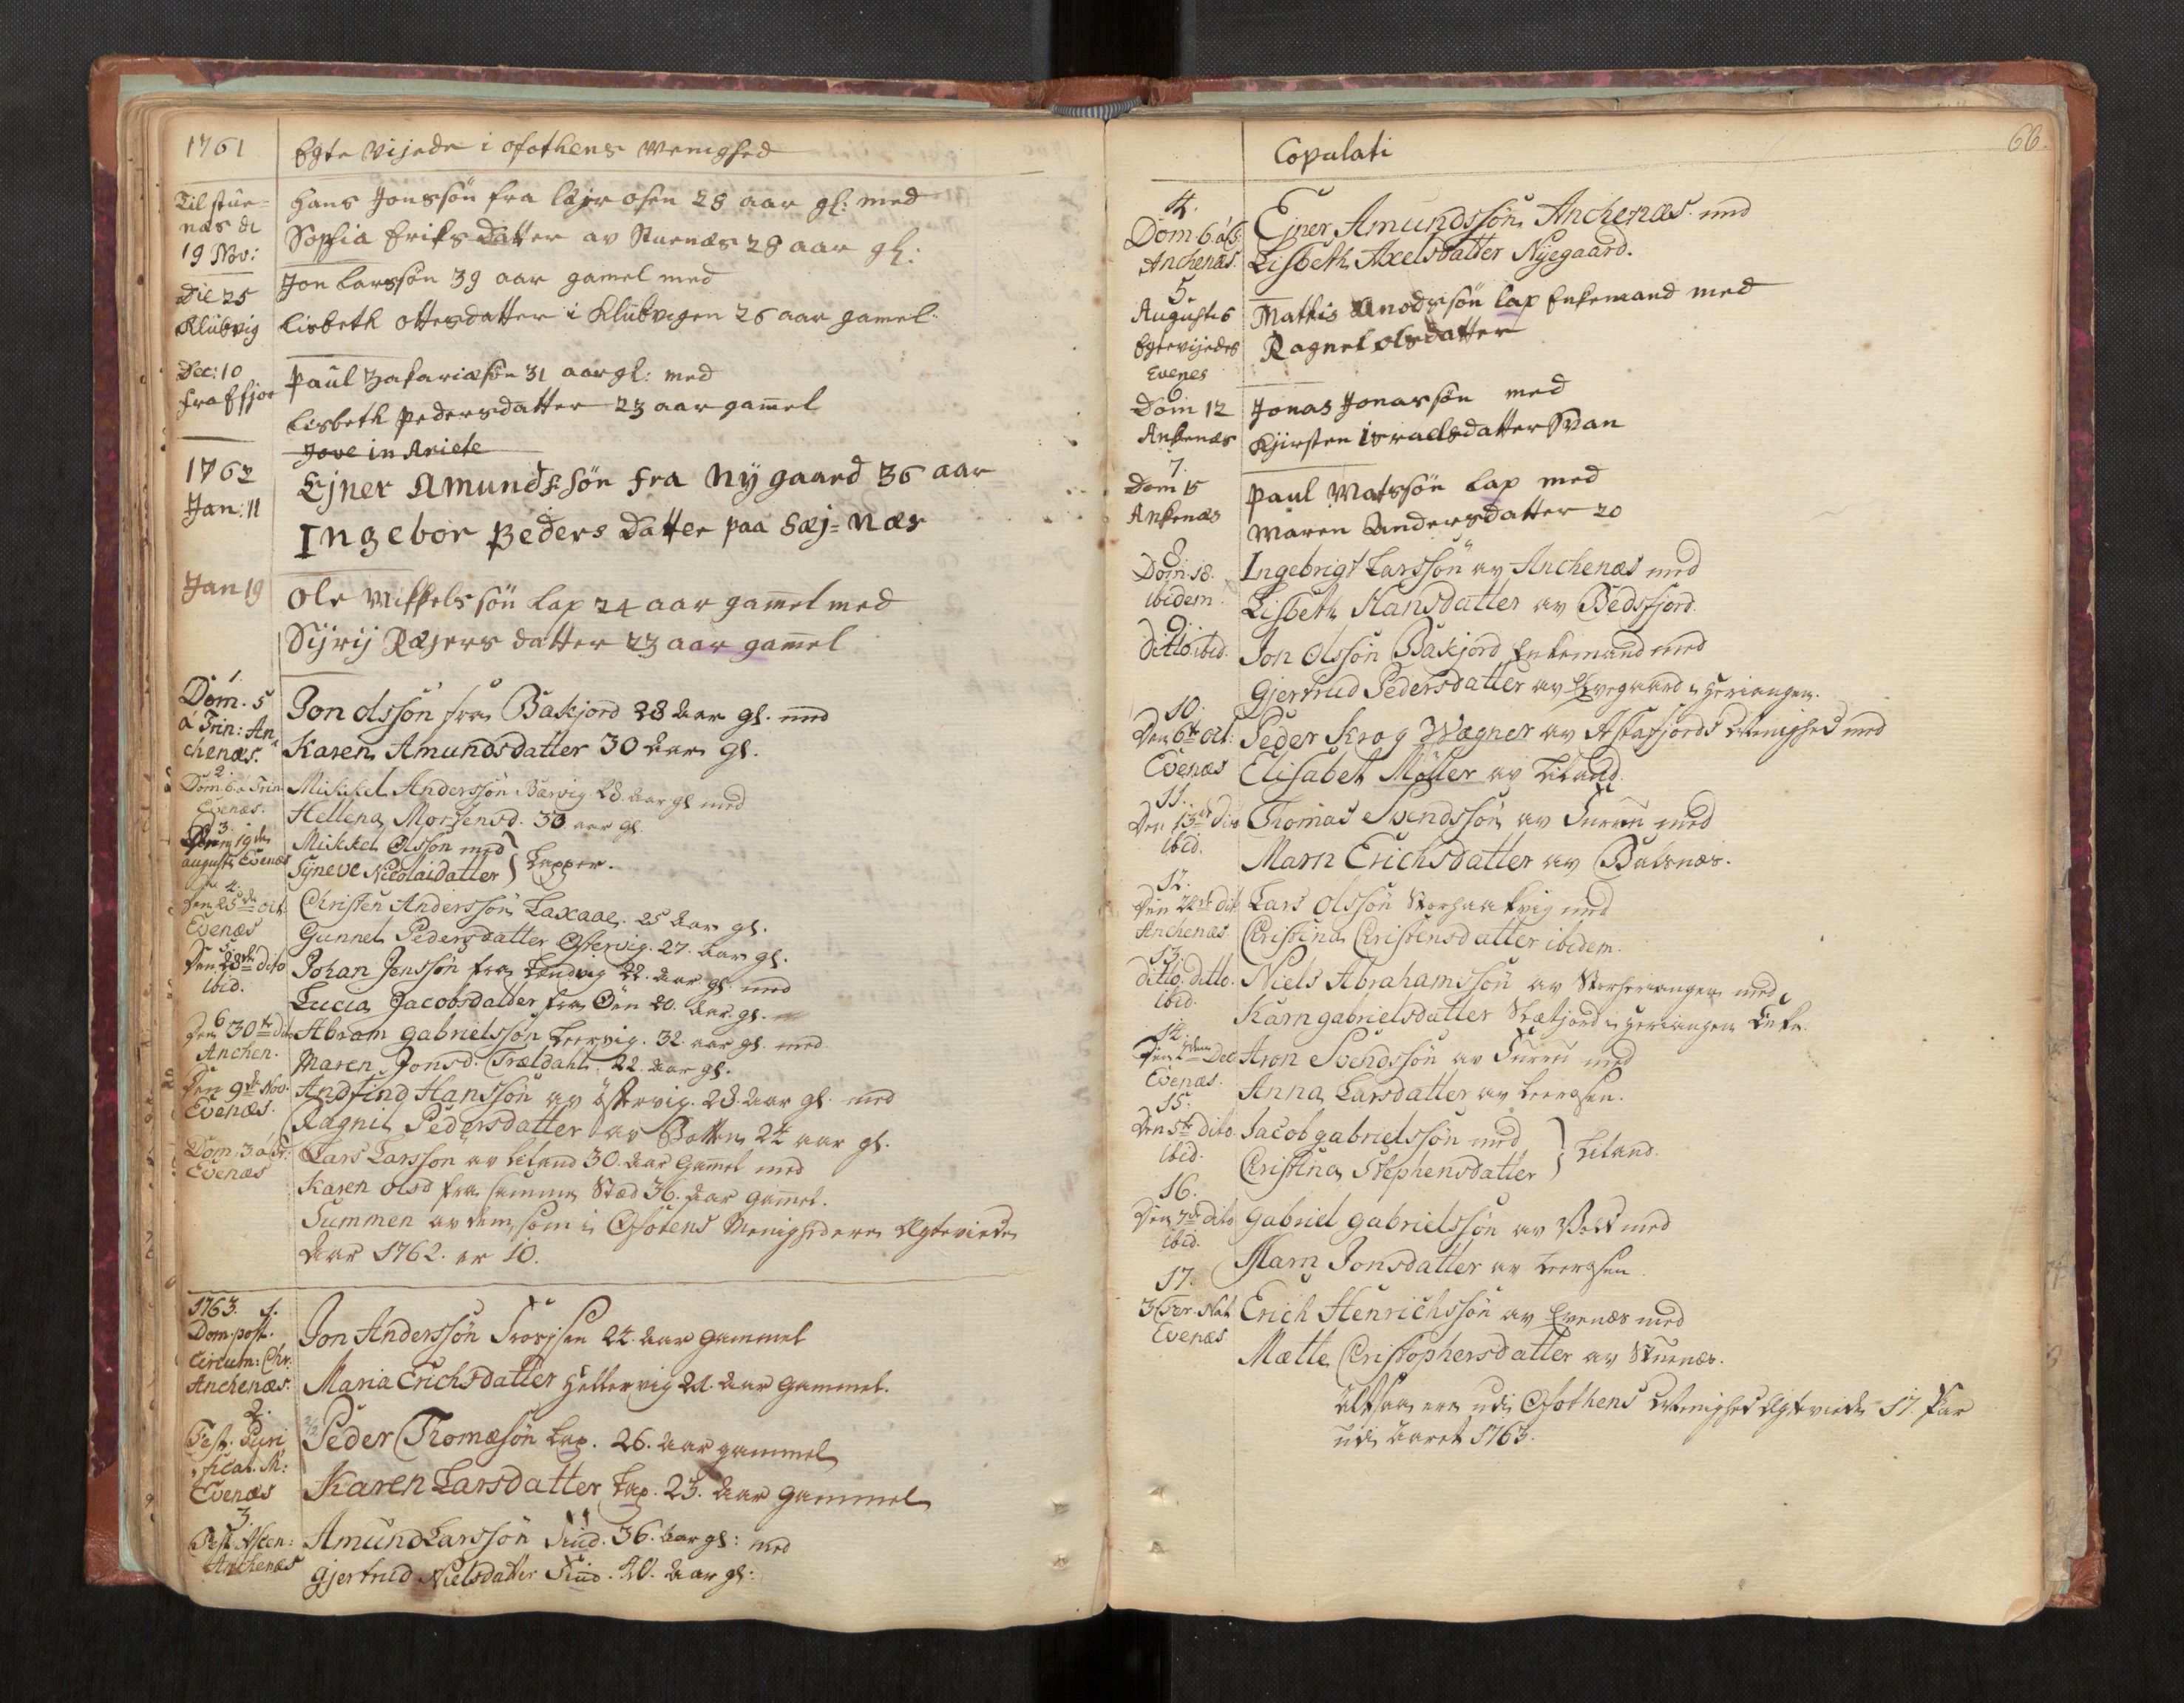 1761
Egte Vijede i ofothens Menighed
Til stue-
næs d:
19 Nov:
Hans Jonssøn fra lejr osen 28 aar gl: med
Sophia Eriks Datter av Stuenæs 28 aar gl:
Die 25
Klubvig
Jon Larssøn 39 aar gamel med
Lisbeth Ottesdatter i Klubvigen 26 aar gamel:
Dec: 10
fra Efjor
Paul Zakariæsøn 31 aar gl: med
Lisbeth Pedersdatter 23 aar gam̄el
Jove in Ariete
1762
Jan: 11
Ejner Amundssøn fra Nygaard 36 aar
Ingebor Peders Datter paa Sæj=Næs
Jan 19
Ole Mikkelssøn Lap 24 aar gam̄el med
Sijrij Ræjers datter 23 aar gam̄el
1.
Dom. 5
á Trin: An
chenæs.
Jon Olssøn fra Bakjord 28 Aar gl. med
Karen Amundsdatter 30 Aar gl.
2.
Dom: 6 a Trin
Evenæs.
Mickel Anderssøn Barvig 28. Aar gl med
Hellena Mortensd. 30 aar gl.
3.
19de
augusti Evenæs
Mikkel Olsson med
Syneve Nicolaidatter } Lapper.
4.
Den 25de Oct.
Evenæs
Christen Anderssøn Laxaae. 25 Aar gl.
Gunnel Pedersdatter Østervig. 27. Aar gl.
5.
Den 28de dito
ibid.
Johan Jenssøn fra Sandvig 22. Aar gl. med
Lucia Jacobsdatter fra Øen 20. Aar. gl.
6
Den 30te Dito
Anchen.
Abram gabrielssøn Leervig. 32. aar gl. med
Maren Jonsd. Trældahl. 22. Aar gl.
Den 9de Nov.
Evenæs.
Andfind Hanssøn av Østervig. 28. Aar gl. med
Ragnil Pedersdatter av Botten 24 aar gl.
Dom. 3 á Tr:
Evenæs
Lars Larsson av Liland 30. Aar Gam̄el med
Karen Olsd fra samme Stæd 36. Aar gam̄el.
Summen av dem som i Ofotens Menigheder Ægteviede
Aar 1762. er 10.
1763. 1.
Dom. post.
Circum: Chr.
Anchenæs.
Jon Anderssøn 24. Aar Gammel
Maria Erichsdatter Hellervig 21. Aar Gammel.
2.
Fest. Puri
ficat. M:
Evenæs
Peder Thomæsøn Lap. 26. Aar gammel
Karen Larsdatter Lap. 23. Aar Gammel
3.
Fest. Ascen:
Anchenæs
Amund Larssøn Find. 36. Aar gl: med
Gjertrud Nielsdatter Find. 40. Aar gl:
Copulati
66.
4.
Dom 6
Anchenæs.
Ejner Amundssøn Anchenæs med
Lisbeth Axelsdatter Nyegaard.
5.
Augusti 6
Egtevijedes
Evenes
Mathis Anodssøn Lap Enkemand med
Ragnel Olsdatter
6
Dom 12
Ankenæs
Jonas Jonassøn med
Kjirsten Israelsdatter Svan
7.
Dom 15
Ankenæs
Paul Matssøn Lap med
Maren Andersdatter 20
8
Dom: 18.
ibidem
Ingebrigt Larssøn av Anchenæs med
Lisbeth Hansdatter av Bedsfjord.
9.
ditto. ibid.
Jon Olssøn Bakjord Enkemand med
Gjertrud Pedersdatter av Øvegaard i Heriangen.
10.
Den 6te Oct:
Evenæs
Peder Krog Wægner av Astafjords Menighed med
Elisabet Møller av Liland
11.
Den 13de dito
ibid.
Thomas Svendssøn av med
Marn Erichsdatter av Balsnæs.
12.
Den 22de dit
Anchenæs
Lars Olssøn Storhaakvig med
Christina Christensdatter ibidem.
13.
ditto. ditto.
ibid.
Niels Abrahamssøn av Storheriangen med
Karn gabrielsdatter i Heriangen Enke.
14.
Den Dec
Evenæs.
Aron Svendssøn av med
Anna Larsdatter av Leerosen.
15.
Den 5te dito
ibid.
Jacob gabrielssøn med
Christina Stephensdatter } Liland.
16.
Den 7de dito
ibid.
Gabriel gabrielssøn av Vold med
Marn Jonsdatter av Leerosen
17.
3 Fer. Nat
Evenæs
Erich Henrichssøn av Evenæs med
Mætte Christophersdatter av Stuenæs.
Altsaa ere udi Ofothens Menighed Ægteviede 17. Par
udi Aaret 1763.